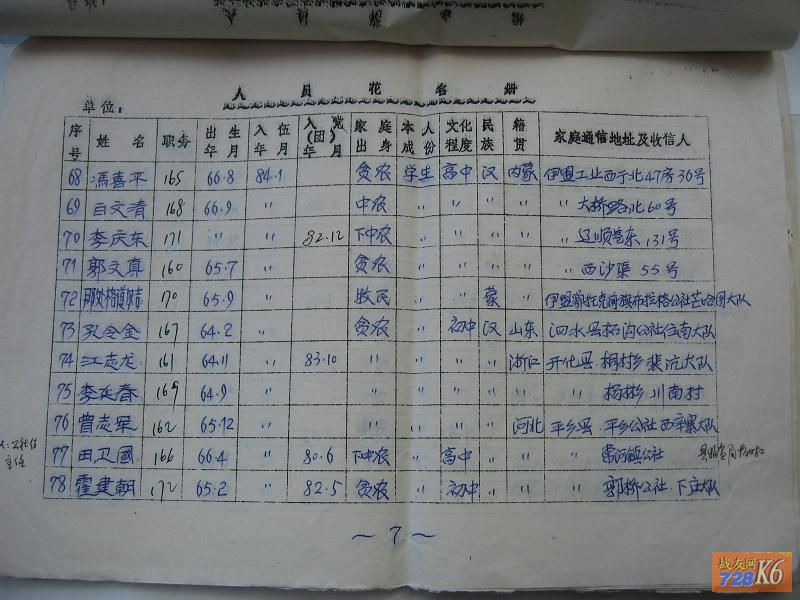 人员花名册
单位：
序号 姓名 职务 出生年月 入伍年月 入党(团)年月 家庭出身 本人成份 文化程度 民族 籍贯 家庭通信地址及收信人
68 冯喜平 165 66.8 84.1 贫农 学生 高中 汉 内蒙 伊盟工业西于北47房36号
69 白文清 168 66.9 〃 中农 〃 〃 〃 〃 〃 大桥路北60号
70 李庆东 171 〃 〃 82.12 下中农 〃 〃 〃 〃 〃 顺巷东131号
71 郭文真 160 65.7 〃 贫农 〃 〃 〃 〃 〃 西沙渠55号
72 170 65.9 〃 牧民 〃 〃 蒙 〃 伊盟鄂托克前旗布拉格公社芒哈图大队
73 孔令金 167 64.2 〃 贫农 〃 初中 汉 山东 泗水县柘沟公社 南大队
74 江志龙 161 64.11 〃 83.10 〃 〃 〃 〃 浙江 开化县.桐村乡裴坑大队
75 李延春 169 64.9 〃 〃 〃 〃 〃 〃 〃 杨彬乡川南村
76 曾志军 162 65.12 〃 〃 〃 〃 〃 河北 平乡县.平乡公社西辛寨大队
77 田卫國 166 66.4 〃 80.6 下中农 〃 高中 〃 〃 〃 常河镇公社
78 霍建朝 172 65.2 〃 82.5 贫农 〃 初中 〃 〃 〃 郭桥公社.下庄大队
主任
~7~
战友网
728K6